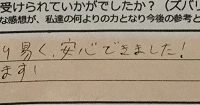 受けられていかがでしたか？（ズバリ
な感想が、私達の何よりの力となり今後の参考と
り易く、安心できました！
ます！